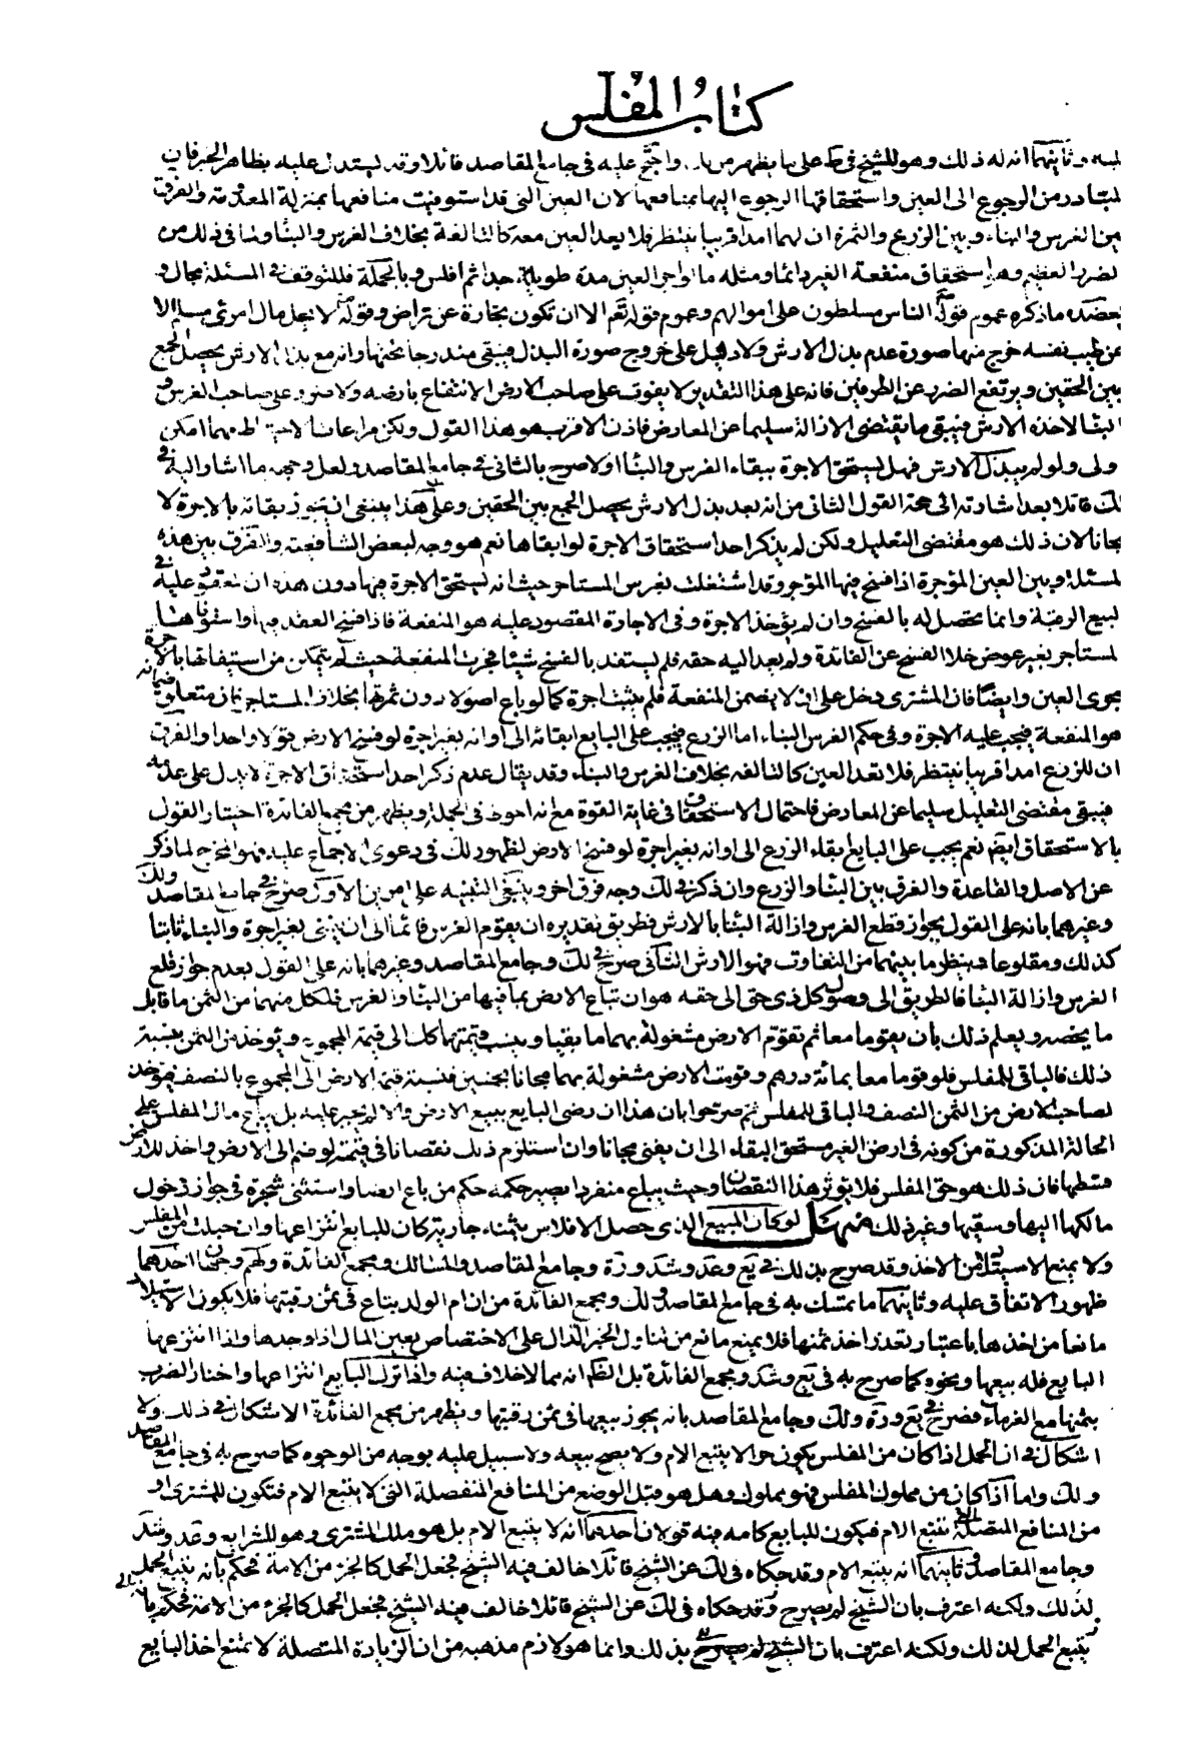 كتاب المفلس
وثانيهما انه له ذلك وهو للشيخ في ط على ما يظهر من واحتج عليه في جامع المقاصد قائلا وقد يستدل عليه بظاهر الخبر فان
المتبادر من الرجوع الى العين واستحقاقها الرجوع اليها بمنافعها لان العين التى قد استوفيت منافعها بمنزلة المعدومة والفرق
بين الغرس والبناء وبين الزرع والثمرة ان لهما امدا قريبا ينتظر فلا يعد العين معه كالتالفة بخلاف الغرس والبناء فان في ذلك من
الضرر العظيم وهو استحقاق منفعة الغير دائما ومثله ما لو اجر العين مدة طويلة جدا ثم افلس وبالجملة فللتوقف في المسئلة مجال و
يعضده ما ذكره عموم قوله الناس مسلطون على اموالهم وعموم قوله تعم الا ان تكون تجارة عن تراض وقوله لا يحل مال امرئ مسلم الا
عن طيب نفسه خرج منها صورة عدم بذل الارش ولا دليل على خروج صورة البذل فيبقى مندرجا تحتها وانه مع بذل الارش يحصل الجمع
بين الحقين ويرتفع الضرر عن الطرفين فانه على هذا التقدير لا يفوت على صاحب الارض الانتفاع بارضه ولا ضرر على صاحب الغرس و
البناء لاخذه الارش فيبقى ما يقتضى الازالة سليما عن المعارض فاذن الاقرب هو هذا القول ولكن مراعات الاحتياط مهما امكن
اولى ولو لم يبذل الارش فهل يستحق الاجرة ببقاء الغرس والبناء اولا صرح بالثانى في جامع المقاصد ولعل وجهه ما اشار اليه في
لك قائلا بعد اشارته الى حجة القول الثانى من انه بعد بذل الارش يحصل الجمع بين الحقين وعلى هذا ينبغى ان يجوز ابقائه بالاجرة لا
مجانا لان ذلك هو مقتضى التعليل ولكن لم يذكر احد استحقاق الاجرة لو ابقاها نعم هو وجه لبعض الشافعية والفرق بين هذه
المسئلة وبين العين المؤجرة اذا فسخ فيها المؤجر وقد اشتغلت بغرس المستاجر حيث انه يستحق الاجرة فيها دون هذه ان المعقود عليه في
البيع الرقبة وانما يحصل له بالفسخ وان لم يؤخذ الاجرة وفى الاجارة المقصود عليه هو المنفعة فاذا فسخ العقد فيها واستوفاها
المستاجر بغير عوض خلا الفسخ عن الفائدة ولم يعد اليه حقه فلم يستفد بالفسخ شيئا فجرت المنفعة حيث لم يتمكن من استيفائها بالاجرة
مجرى العين وايضا فان المشترى دخل على ان لا يضمن المنفعة فلم يثبت اجرة كما لو باع اصولا دون ثمرتها بخلاف المستاجر فان متعلق ضمانه
هو المنفعة فيجب عليه الاجرة وفى حكم الغرس البناء اما الزرع فيجب على البايع ابقائه الى اوانه بغير اجرة لو فسخ الارض قولا واحدا والفرق
ان للزرع امدا قريبا ينتظر فلا تعد العين كالتالفه بخلاف الغرس والبناء وقد يقال عدم ذكر احد استحقاق الاجرة لا يدل على عدمه
فيبقى مقتضى التعليل سليما عن المعارض فاحتمال الاستحقاق في غاية القوة مع انه احوط في الجملة ويظهر من مجمع الفائدة اختيار القول
بالاستحقاق ايضا نعم يجب على البايع ابقاء الزرع الى اوانه بغير اجرة لو فسخ الارض لظهور لك في دعوى الاجماع عليه فهو المخرج لما ذكر
عن الاصل والقاعدة والفرق بين البناء والزرع وان ذكر في لك وجه فرق اخر وينبغى التنبيه على امرين الاول صرح في جامع المقاصد ولك
وغيرهما بانه على القول بجواز قطع الغرس وازالة البناء بالارش فطريق تقديره ان يقوم الغرس قائما الى ان يفنى بغير اجرة والبناء ثابتا
كذلك ومقلوعا وينظر ما بينهما من التفاوت فهو الارش الثانى صرح في لك وجامع المقاصد وغيرهما بانه على القول بعدم جواز قلع
الغرس وازالة البناء فالطريق الى وصول كل ذى حق الى حقه هو ان تباع الارض بما فيها من البناء والغرس فلكل منهما من الثمن ما قابل
ما يخصه ويعلم ذلك بان يقوما معا ثم تقوم الارض مشغولة بهما ما بقيا وينسب قيمتها كك الى قيمة المجموع ويؤخذ من الثمن بنسبة
ذلك فالباقى للمفلس فلو قوما معا بمائة درهم وقومت الارض مشغولة بهما مجانا بخمسين فنسبة قيمة الارض الى المجموع بالنصف فيؤخذ
لصاحب الارض من الثمن النصف والباقى للمفلس ثم صرحوا بان هذا ان رضى البايع ببيع الارض والا لم يجبر عليه بل يباع مال المفلس على
الحالة المذكورة من كونه في ارض الغير مستحق البقاء الى ان يفنى مجانا وان استلزم ذلك نقصانا في قيمته لو ضم الى الارض واخذ للارض
قسطها فان ذلك هو حق المفلس فلا يؤثر هذا النقصان وحيث يباع منفردا يصير حكمه حكم من باع ارضا واستثنى شجرة في جواز دخول
مالكها اليها وسقيها وغير ذلك منهل لو كان المبيع الذى حصل الافلاس بثمنه جارية كان للبايع انتزاعها وان حبلت من المفلس
ولا يمنع الاستيلاد من الاخذ وقد صرح بذلك في يع وعد وشد ورة وجامع المقاصد والمسالك ومجمع الفائدة ولهم وجهان احدهما
ظهور الاتفاق عليه وثانيهما ما تمسك به في جامع المقاصد ولك ومجمع الفائدة من ان ام الولد يباع في ثمن رقبتها فلا يكون الاستيلاد
مانعا من اخذها باعتبار تعذر اخذ ثمنها فلا يمنع مانع من تناول الخبر الدال على الاختصاص بعين المال اذا وجدها واذا انتزعها
البايع فله بيعها ونحوه كما صرح به في يع وشد ومجمع الفائدة بل الظ انه مما لا خلاف فيه واذا ترك البايع انتزاعها واختار الضرب
بثمنها مع الغرماء فصرح في يع ورة ولك وجامع المقاصد بانه يجوز بيعها في ثمن رقبتها ويظهر من مجمع الفائدة الاشكال في ذلك ولا
اشكال في ان الحمل اذا كان من المفلس يكون حرا لا يتبع الام ولا يصح بيعه ولا سبيل عليه بوجه من الوجوه كما صرح به في جامع المقاصد
ولك واما اذا كان من مملوك المفلس فهو مملوك وهل هو قبل الوضع من المنافع المنفصلة التى لا يتبع الام فتكون للمشترى او
من المنافع المتصلة التى تتبع الام فيكون للبايع كامه فيه قولان احدهما انه لا يتبع الام بل هو ملك المشترى وهو للشرايع وعد وشد
وجامع المقاصد وثانيهما انه يتبع الام وقد حكاه في لك عن الشيخ قائلا خالف فيه الشيخ فجعل الحمل كالجزء من الامة فحكم بانه يتبع الحمل
لذلك ولكنه اعترف بان الشيخ لم يصرح وقد حكاه في لك عن الشيخ قائلا خالف فيه الشيخ فجعل الحمل كالجزء من الامة فحكم بانه
يتبع الحمل لذلك ولكنه اعترف بان الشيخ لم يصرح بذلك وانما هو لازم مذهبه من ان الزيادة المتصلة لا تمنع اخذ البايع